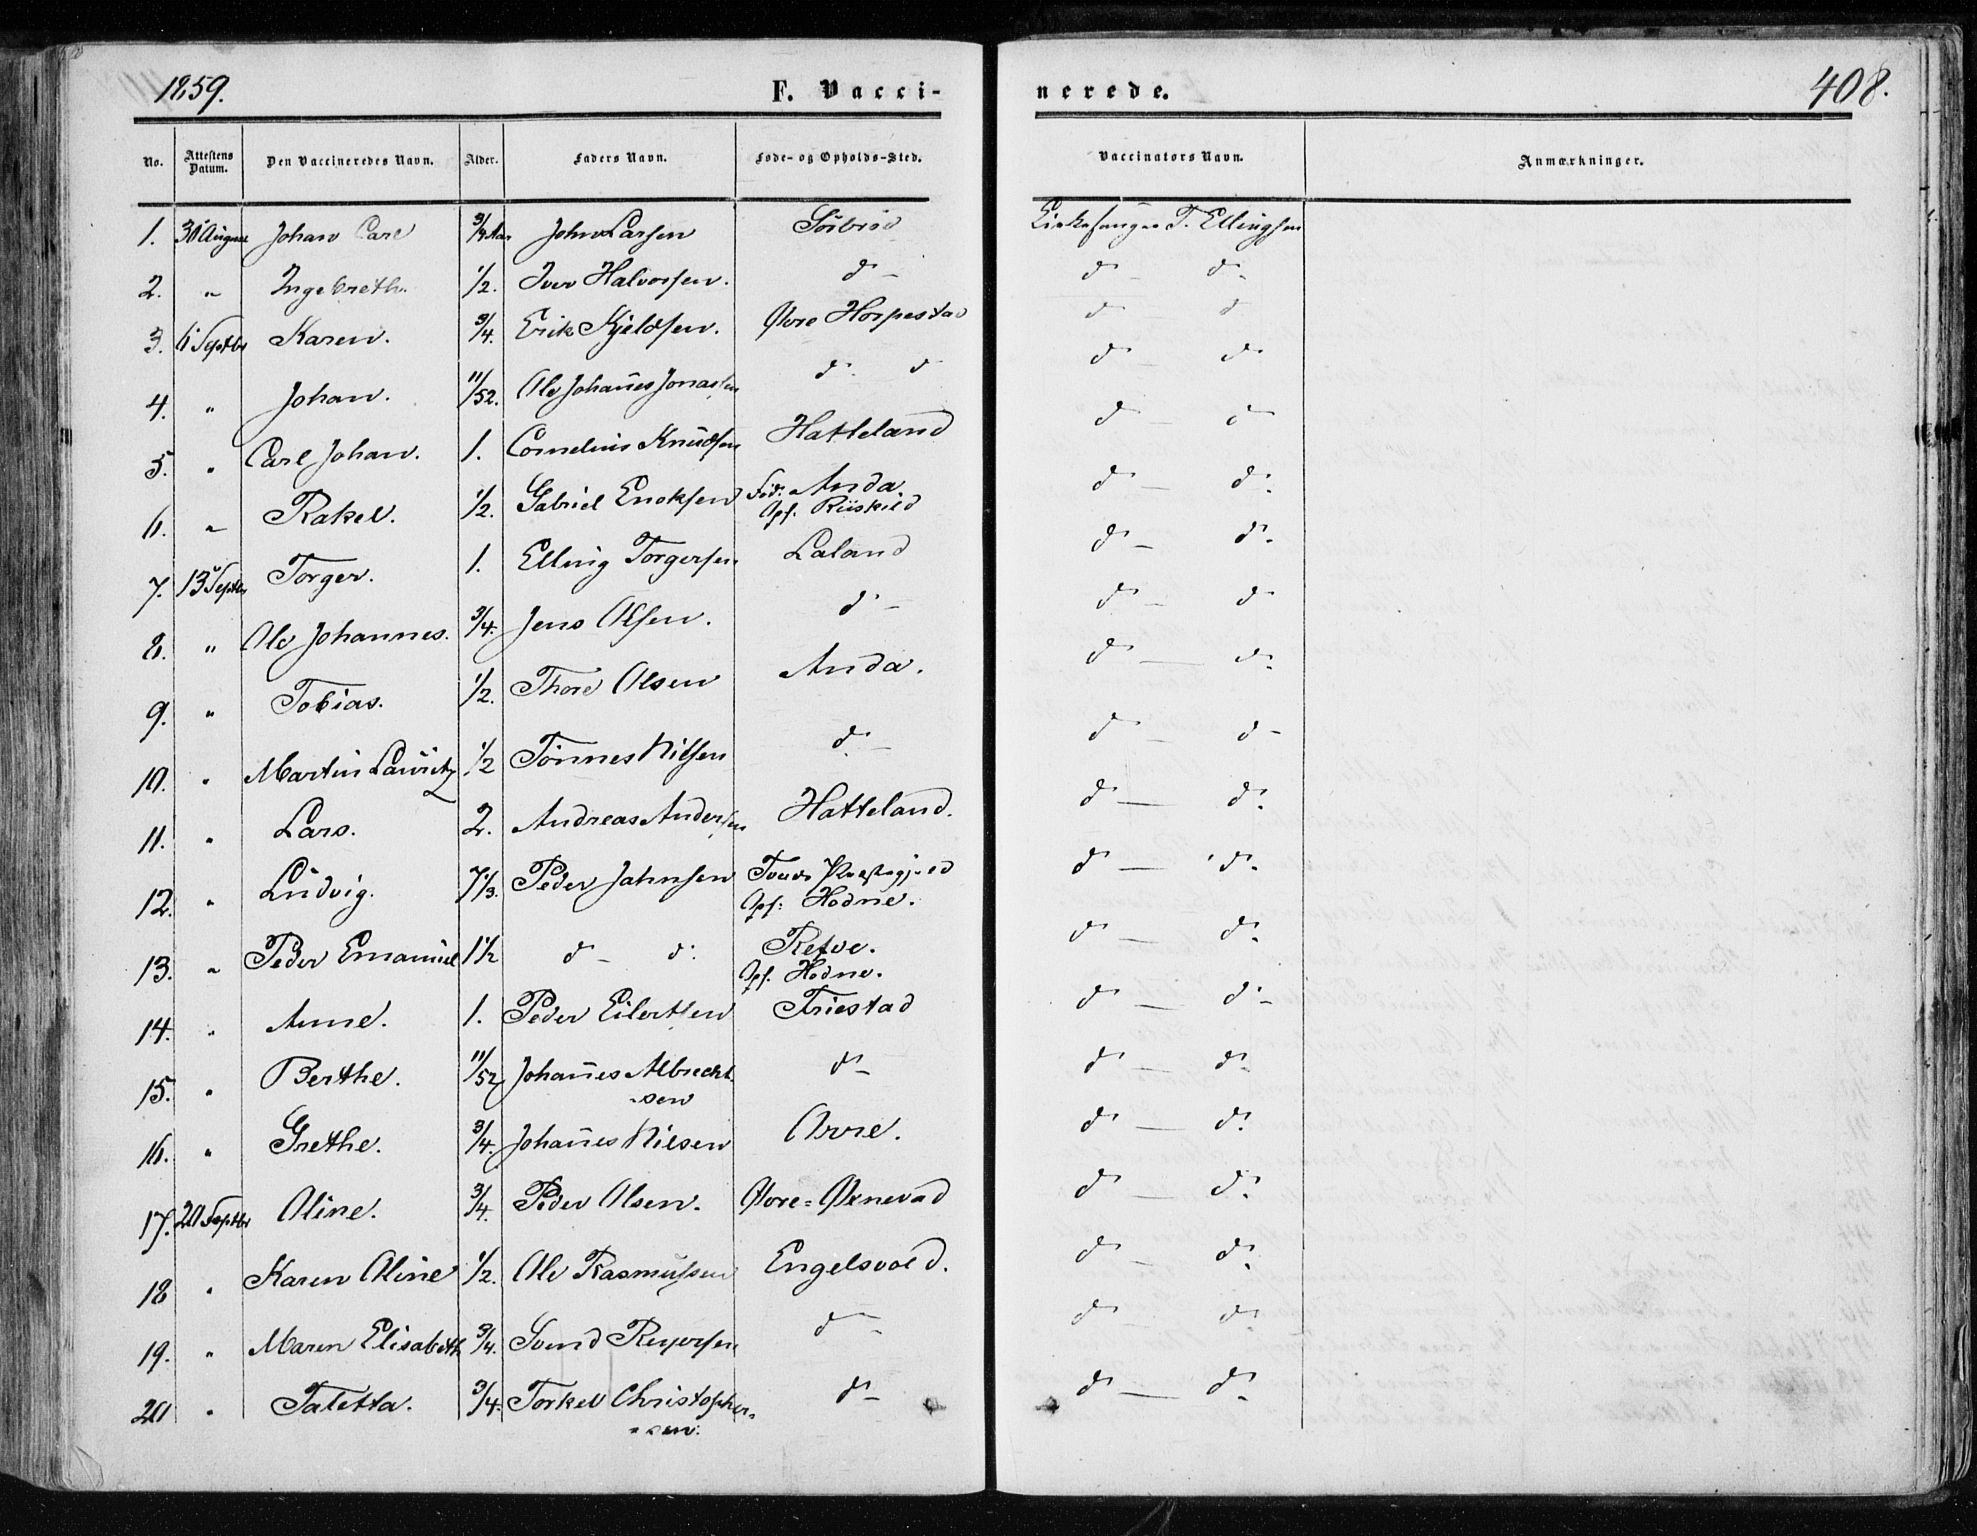 1859.
F. Vacci-
nerede.
408.
No. Attestens Datum. Den Vaccineredes Navn. Alder. Faders Navn. Føde- og Opholds-Sted. Vaccinators Navn. Anmærkninger.
1. 30 August Johan Carl 3/4 Aar John Larsen Sørbrød Kirkesanger T. Ellingsen
2. " Ingebreth. 1/2. Iver Halvorsen. d - d - d -
3. 6 Septbr Karen. 3/4. Erik Kjeldsen. Øvre Horpestad d d
4. " Johan. 11/52. Ole Johañes Jonassen d d d - d
5. " Carl Johan. 1. Cornelius Knudsen Hatteland d - d
6. " Rakel. 1/2. Gabriel Enoksen Fød: Anda d - d -
Opf:
7. 13 Septbr Torger. 1. Elling Torgersen Laland d - d -
8. " Ole Johannes. 3/4. Jens Olsen. d - d - d
9. " Tobias. 1/2. Thore Olsen Anda. d - d -
10. " Martin Lauritz 1/2 Tönnes Nilsen d - d - d -
11. " Lars. 2. Andreas Andersen Hatteland. d - d -
12. " Ludvig. 7 1/3. Peder Jahnsen Præstegjeld d - d -
Opf: Hodne.
13. " Peder Emanuel 1 1/2 d - d: Refve. d - d -
Opf. Hodne.
14. " Anne. 1. Peder Eilertsen Friestad d - d -
15. " Berthe. 11/52 Johañes Albrecht- d - d - d -
-sen
16. " Grethe. 3/4. Johañes Nilsen Orre. d - d -
17. 20 Septbr Oline. 3/4. Peder Olsen. Øvre-Øxnevad d - d -
18 " Karen Oline 1/2. Ole Rasmussen Engelsvold. d - d -
19. " Maren Elisabeth 3/4. Svend Reyersen d - d - d -
20 " Taletta. 3/4. Torkel Christopher- d - d - d -
-sen.